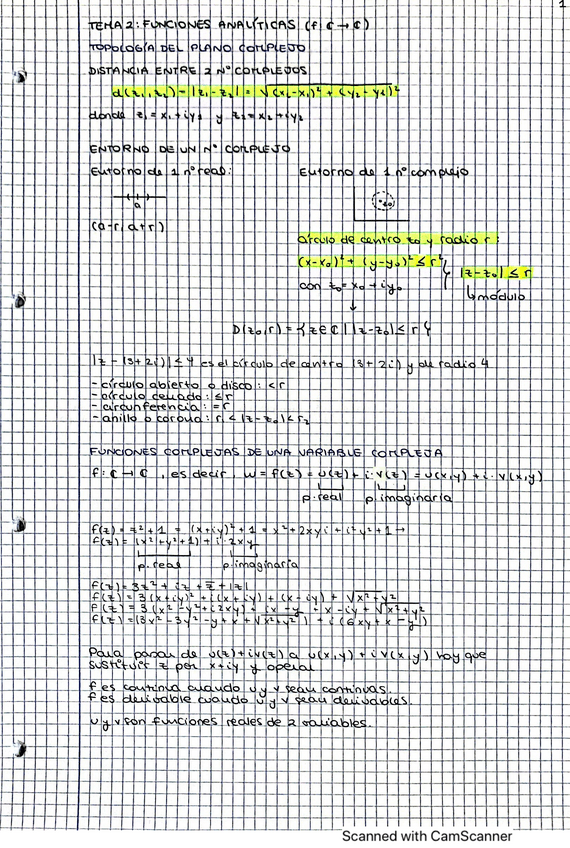 1
TEMA 2: FUNCIONES ANALÍTICAS (f: ℂ → ℂ)
TOPOLOGÍA DEL PLANO COMPLEJO
DISTANCIA ENTRE 2 Nº COMPLEJOS
d(z₁, z₂) = |z₁-z₂| = √(x₂-x₁)² + (y₂-y₁)²
donde z₁ = x₁+iy₁ y z₂ = x₂+iy₂
ENTORNO DE UN Nº COMPLEJO
Entorno de 1 nº real:
a
(a-r, a+r)
Entorno de 1 nº complejo
z₀
círculo de centro z₀ y radio r:
(x-x₀)² + (y-y₀)² ≤ r² } |z-z₀| ≤ r
con z₀ = x₀ + iy₀
↳ módulo
↓
D(z₀, r) = { z ∈ ℂ | |z-z₀| ≤ r }
|z - (3+2i)| ≤ 4 es el círculo de centro (3+2i) y de radio 4
- círculo abierto o disco: < r
- círculo cerrado: ≤ r
- circunferencia: = r
- anillo o corona: r₁ < |z-z₀| < r₂
FUNCIONES COMPLEJAS DE UNA VARIABLE COMPLEJA
f: ℂ → ℂ, es decir, w = f(z) = u(z) + i·v(z) = u(x,y) + i·v(x,y)
p. real p. imaginaria
f(z) = z² + 1 = (x+iy)² + 1 = x² + 2xyi + i²y² + 1 →
f(z) = (x² + y² + 1) + i·2xy
p. real p. imaginaria
f(z) = 3z² + iz + z̄ + |z|
f(z) = 3(x+iy)² + i(x+iy) + (x-iy) + √x²+y²
f(z) = 3(x²-y²+i2xy) + ix - y + x - iy + √x²+y²
f(z) = (3x² - 3y² - y + x + √x²+y²) + i(6xy + x - y)
Para pasar de u(z) + iv(z) a u(x,y) + iv(x,y) hay que
sustituir z por x+iy y operar
f es continua cuando u y v sean continuas.
f es derivable cuando u y v sean derivables.
u y v son funciones reales de 2 variables.
Scanned with CamScanner